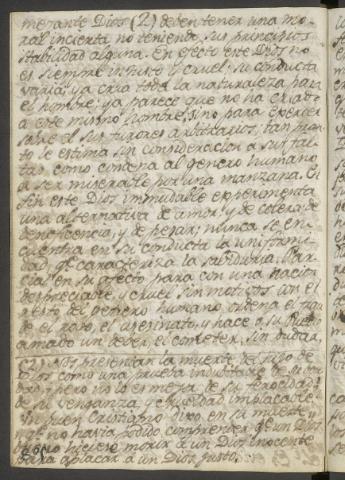 mejante Dios (2) deben tener una mo-
ral incierta no teniendo sus principios
stabilidad alguna. En efecto este Dios no
es siempre injusto y cruel: su conducta
varia: ya cria toda la naturaleza para
el hombre; ya parece que no ha criado
a este mismo hombre, sino para exercer
sobre el sus furores arbitrarios; tan pron
to le estima sin consideracion a sus fal
tas, como condena al genero humano
a ser miserable por una manzana. En
fin este Dios immudable experimenta
una alternativa de amor y de colera, de
beneficencia, y de pesar; nunca se en-
cuentra en su conducta la uniformi-
dad qe caracteriza la sabiduria. Par-
cial en su afecto para con una nacion
despreciable, y cruel sin motivos con el
resto del genero humano, ordena el frau
de el robo, el asesinato, y hace a su Pueblo
amado un deber el cometer, sin dudar,
(2) Nos presentan la muerte del hijo de
Dios como una prueba indubitable de su
pero no lo es mejor de su ferocidad
de su venganza, y crueldad implacable.
Un buen Cristiano dixo en su muerte
no havia podido comprender qe un Dios
hiciese morir a un Dios inocente
para aplacar a un Dios justo.